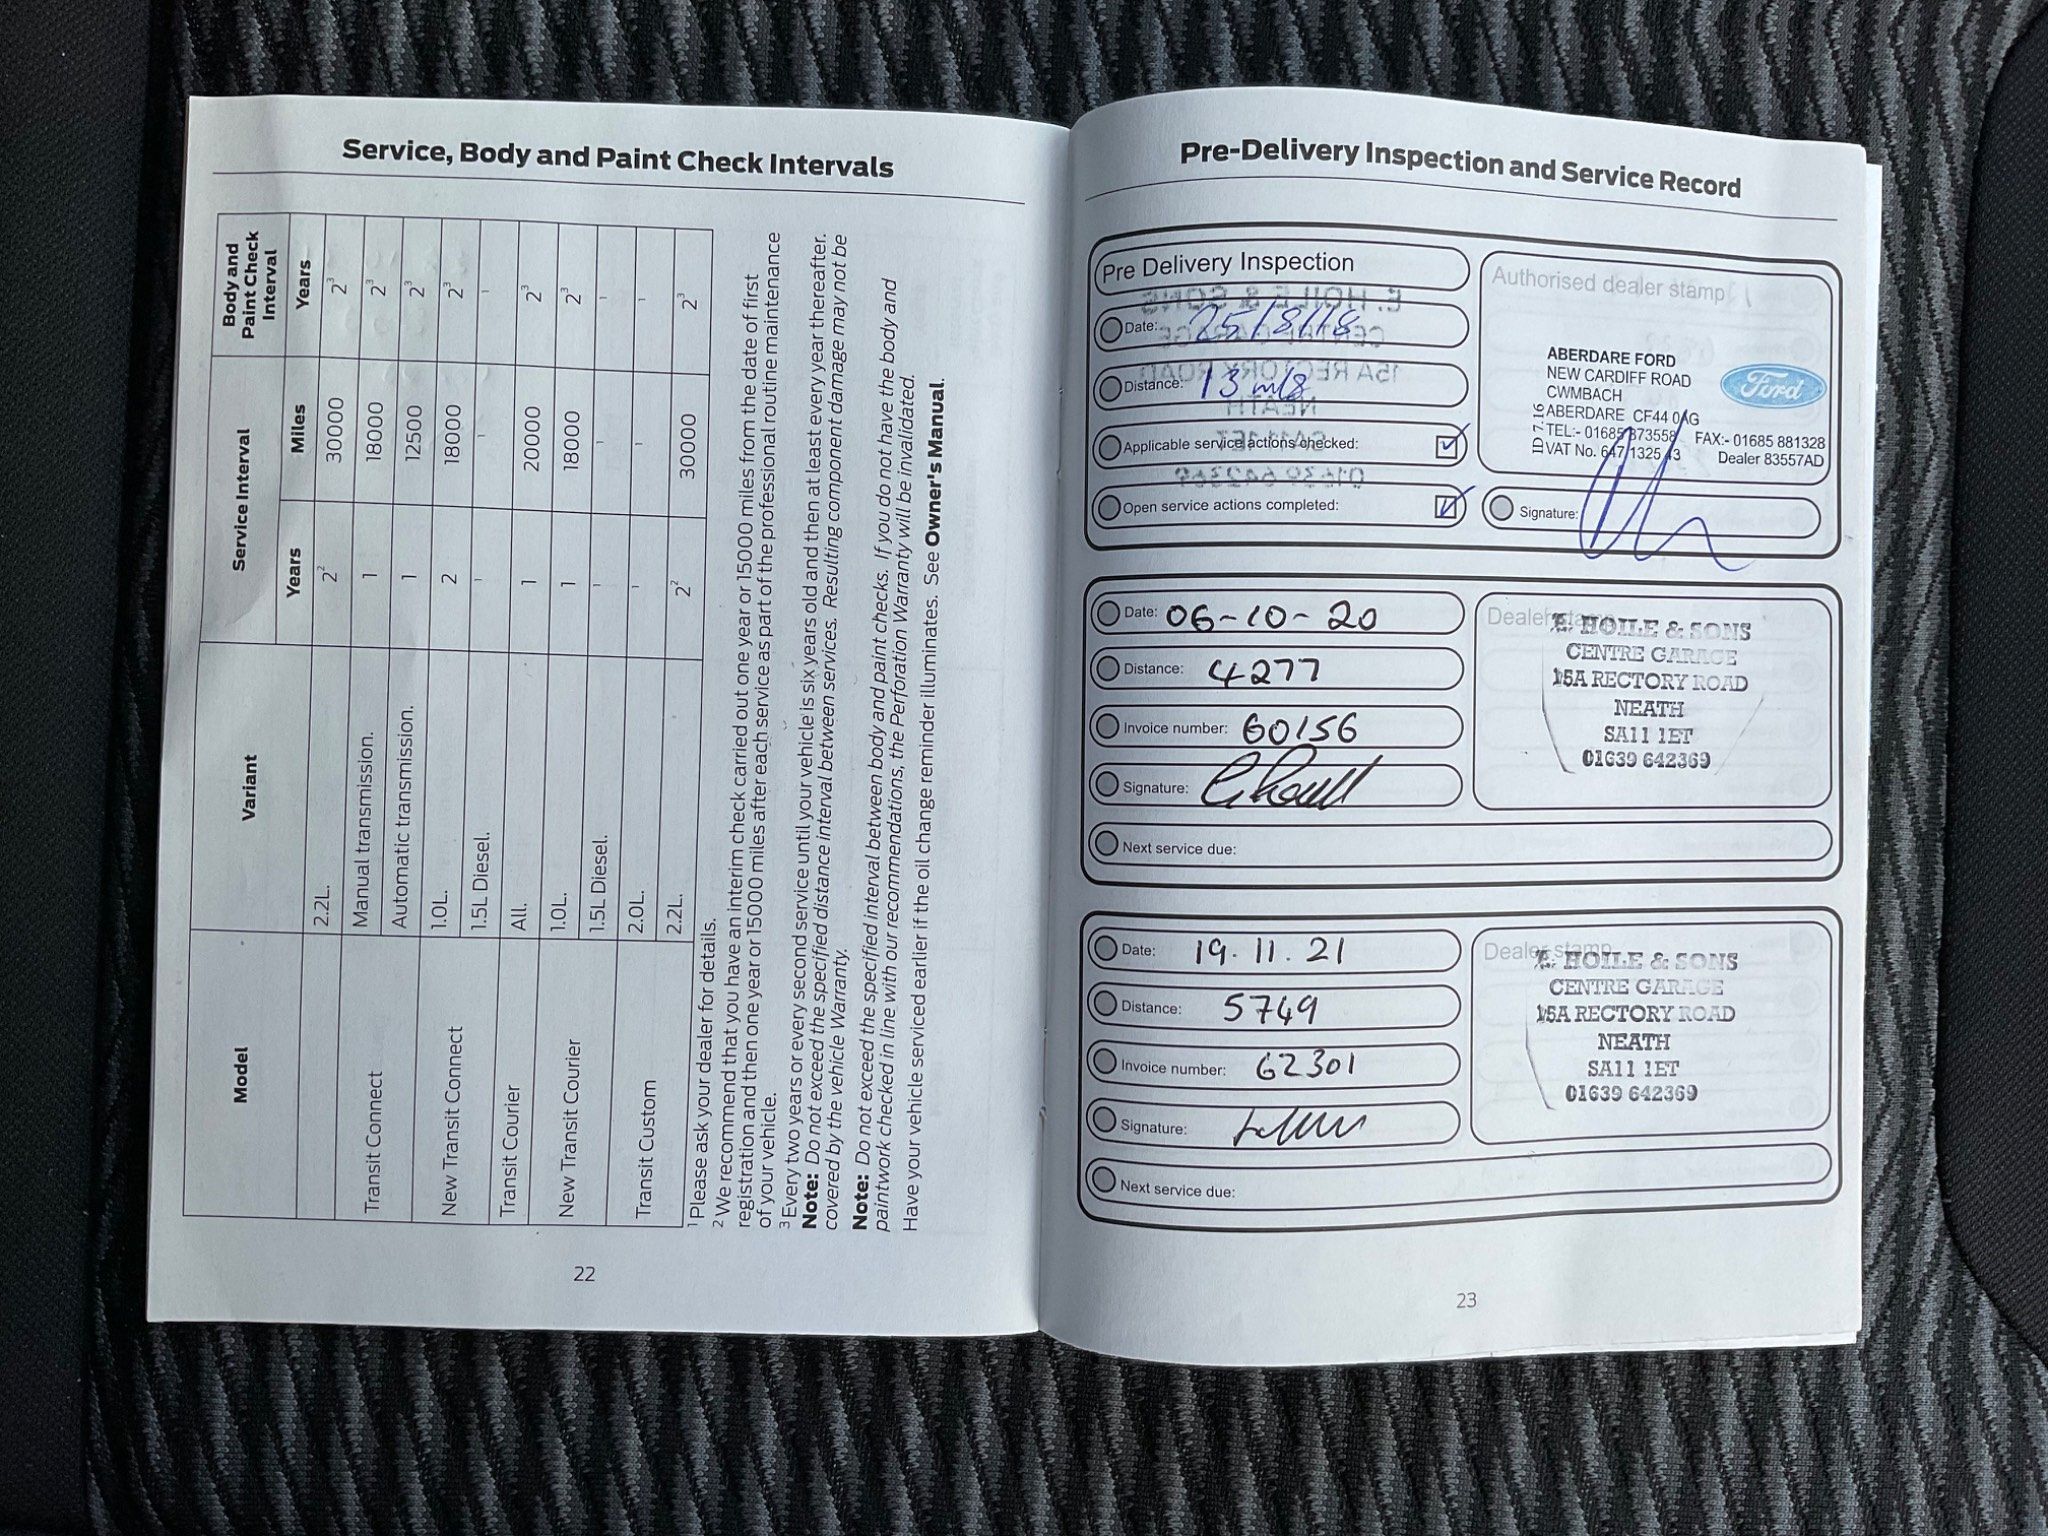 Service, Body and Paint Check Intervals
Model Variant Service Interval Body and Paint Check Interval
Years Miles Years
2.2L. 2² 30000 2³
Transit Connect Manual transmission. 1 18000 2³
Automatic transmission. 1 12500 2³
New Transit Connect 1.0L. 2 18000 2³
1.5L Diesel. ¹ ¹ ¹
Transit Courier All. 1 20000 2³
New Transit Courier 1.0L. 1 18000 2³
1.5L Diesel. ¹ ¹ ¹
Transit Custom 2.0L. ¹ ¹ ¹
2.2L. 2² 30000 2³
¹ Please ask your dealer for details.
² We recommend that you have an interim check carried out one year or 15000 miles from the date of first
registration and then one year or 15000 miles after each service as part of the professional routine maintenance
of your vehicle.
³ Every two years or every second service until your vehicle is six years old and then at least every year thereafter.
Note: Do not exceed the specified distance interval between services. Resulting component damage may not be
covered by the vehicle Warranty.
Note: Do not exceed the specified interval between body and paint checks. If you do not have the body and
paintwork checked in line with our recommendations, the Perforation Warranty will be invalidated.
Have your vehicle serviced earlier if the oil change reminder illuminates. See Owner's Manual.
22
Pre-Delivery Inspection and Service Record
Pre Delivery Inspection
Date: 25/8/18
Distance: 13 mls
Applicable service actions checked:
Open service actions completed:
Authorised dealer stamp
ABERDARE FORD
NEW CARDIFF ROAD
CWMBACH
ABERDARE CF44 0AG
TEL:- 01685 873558 FAX:- 01685 881328
VAT No. 647 1325 43 Dealer 83557AD
ID7.16
Ford
Signature:
Date: 06-10-20
Distance: 4277
Invoice number: 60156
Signature:
Next service due:
Dealer stamp
E. HOILE & SONS
CENTRE GARAGE
15A RECTORY ROAD
NEATH
SA11 1ET
01639 642369
Date: 19.11.21
Distance: 5749
Invoice number: 62301
Signature:
Next service due:
Dealer stamp
E. HOILE & SONS
CENTRE GARAGE
15A RECTORY ROAD
NEATH
SA11 1ET
01639 642369
23